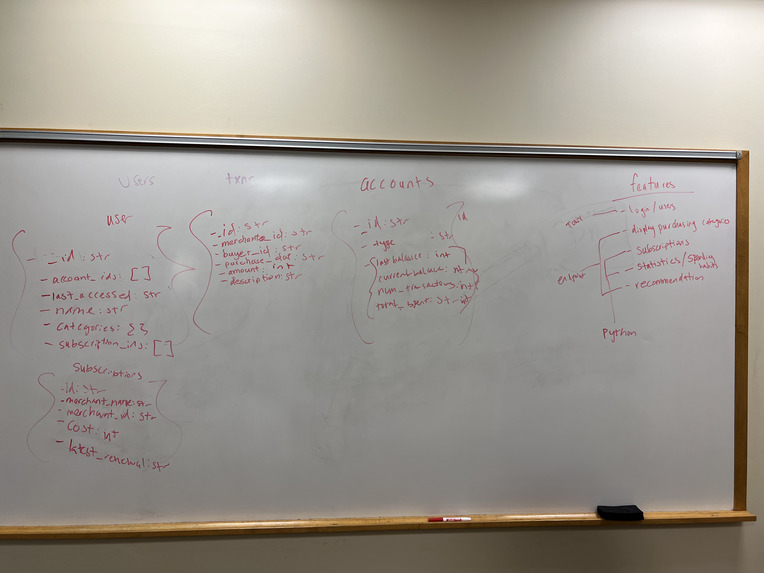 users
user
- _id: str
- account_ids: []
- last_accessed: str
- name: str
- categories: {}
- subscription_ids: []
subscriptions
- id: str
- merchant_name: str
- merchant_id: str
- cost: int
- latest_renewal: str
txns
- _id: str
- merchant_id: str
- buyer_id: str
- purchase_dat: str
- amount: int
- description: str
accounts
id
- _id: str
- type : str
last balance: int
current balance: int
num_transactions: int
total_spent: int
features
- login/users
- display purchasing categories
- subscriptions
- statistics/spending habits
- recommendation
Python